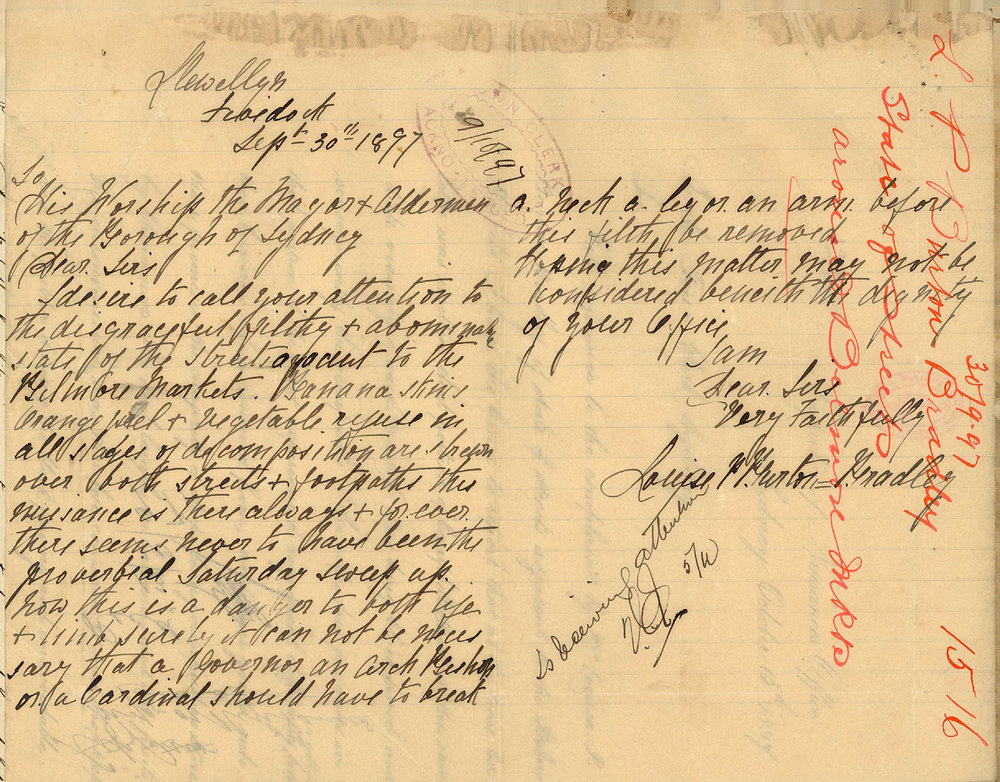 Llewellyn
Sept 30th 1897
To
His Worship the Mayor & Aldermen
of the Borough of Sydney
Dear. Sirs
I desire to call your attention to
the disgraceful filthy & abominable
state of the streets ajacent to the
Belmore Markets. Banana skins
Orange peel & vegetable refuse in
all stages of decomposition are strewn
over both streets & footpaths this
nuisance is there always & for ever.
there seems never to have been the
proverbial Saturday sweep up.
Now this is a danger to both life
& limb surely it can not be neces
sary that a Governor an Arch Bishop
or a Cardinal should have to break
TOWN CLERK
9/10/97
a. neck a. leg or. an arm. before
this filth be removed
Hoping this matter may not be
considered beneith the dignity
of your Office
I am
Dear. Sirs
Very Faithfully
Louise P Burton=Bradley
5/10
L. P. Burton Bradley
30/9.97
State of Streets
around Belmore Mkts
1516